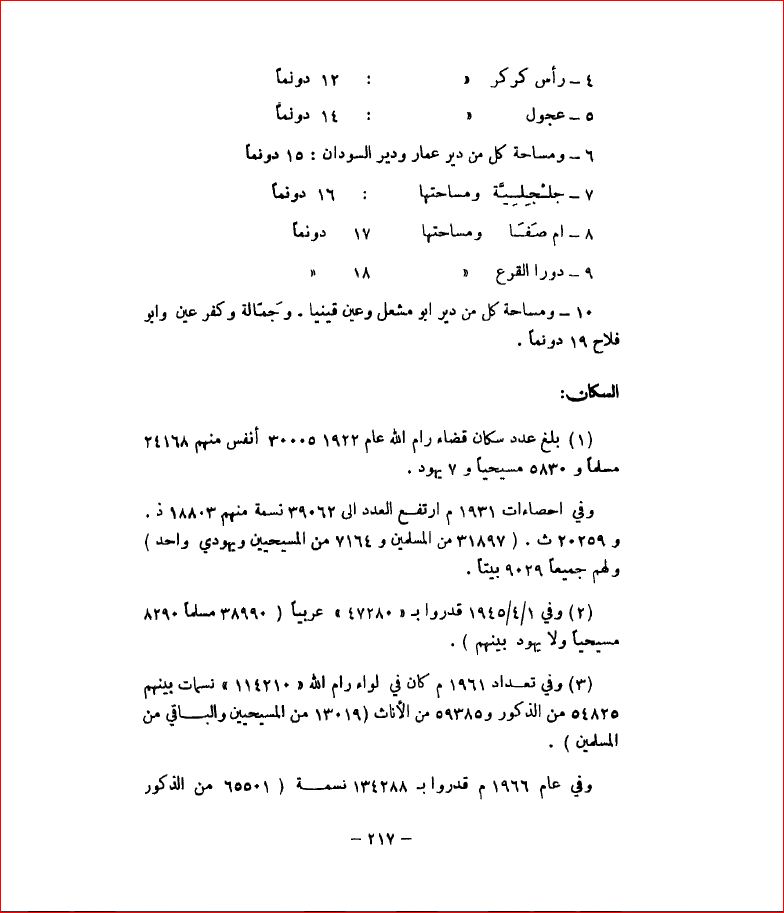 ٤ – رأس كركر » : ١٢ دونماً
٥ – عجول » : ١٤ دونماً
٦ – ومساحة كل من دير عمار ودير السودان : ١٥ دونماً
٧ – جلْجِيلِيَّة ومساحتها : ١٦ دونماً
٨ – ام صَفَا ومساحتها ١٧ دونماً
٩ – دورا القرع » ١٨ »
١٠ – ومساحة كل من دير ابو مشعل وعين قينيا . وَجمّالة وكفر عين وابو
فلاح ١٩ دونماً .
السكان:
(١) بلغ عدد سكان قضاء رام الله عام ١٩٢٢ ٣٠٠٠٥ أنفس منهم ٢٤١٦٨
مسلماً و ٥٨٣٠ مسيحياً و ٧ يهود .
وفي احصاءات ١٩٣١ م ارتفع العدد الى ٣٩٠٦٢ نسمة منهم ١٨٨٠٣ ذ .
و ٢٠٢٥٩ ث . ( ٣١٨٩٧ من المسلمين و ٧١٦٤ من المسيحيين ويهودي واحد )
ولهم جميعاً ٩٠٢٩ بيتاً .
(٢) وفي ١/٤/١٩٤٥ قدروا بـ « ٤٧٢٨٠ » عربياً ( ٣٨٩٩٠ مسلماً ٨٢٩٠
مسيحياً ولا يهود بينهم ) .
(٣) وفي تعداد ١٩٦١ م كان في لواء رام الله « ١١٤٢١٠ » نسمات بينهم
٥٤٨٢٥ من الذكور و٥٩٣٨٥ من الأناث (١٣٠١٩ من المسيحيين والباقي من
المسلمين ) .
وفي عام ١٩٦٦ م قدروا بـ ١٣٤٢٨٨ نسمة ( ٦٥٥٠١ من الذكور
– ٢١٧ –